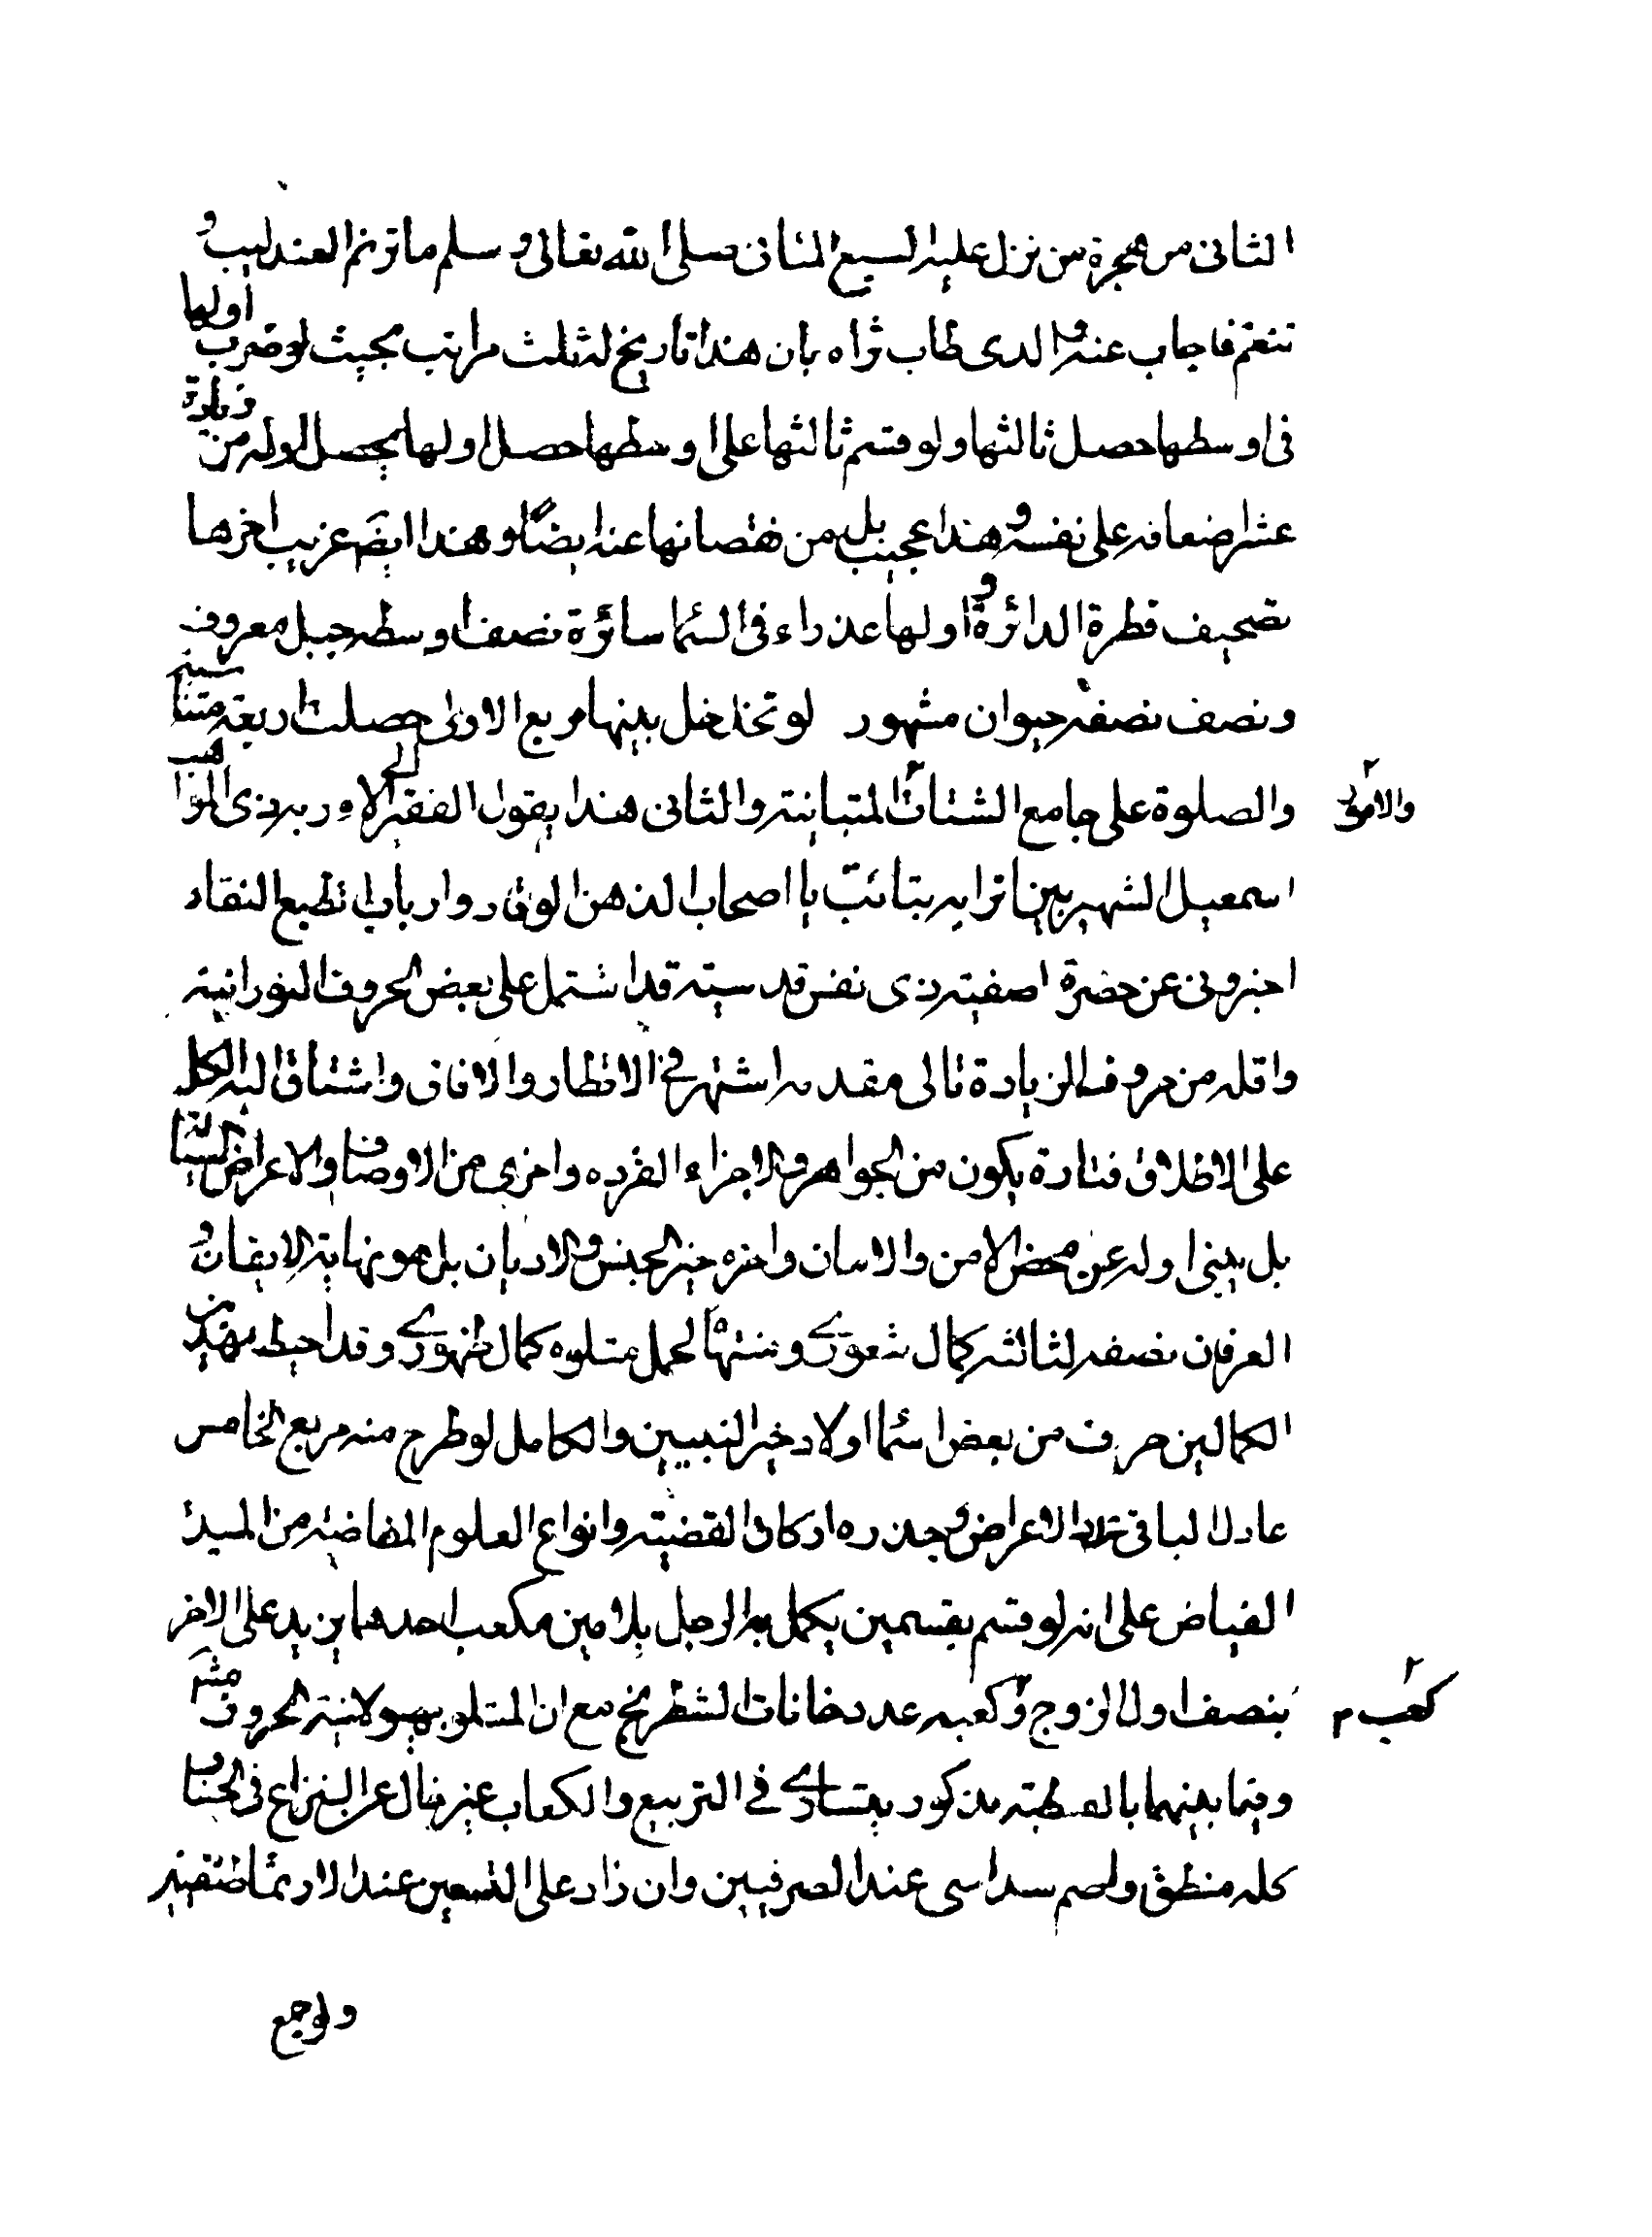 الثانى من هجرة من نزل عليه السبع المثانى صلى الله تعالى و سلم ما ترنم العندليب و
تنغم فاجاب عنه والدى طاب ثراه بان هذا تاريخ له ثلث مراتب بحيث لو ضرب اولها
فى اوسطها حصل ثالثها ولو قسم ثالثها على اوسطها حصل اولها يحصل اوله من زيادة
عشر اضعافه على نفسه و هذا عجيب بل من نقصانها عنه ايضا و هذا ايضا غريب اخرها
تصحيف قطرة الدائرة و اولها عذراء فى السماء سائرة نصف اوسطه جبل معروف
ونصف نصفه حيوان مشهور لو تخلخل بينها مربع الاولى حصلت اربعة متناسبة
والصلوة على جامع الشتات المتباينة والثانى هذا يقول الفقير الى الاء ربه ذى المواهب
والاولى
اسمعيل الشهير بين اترابه بتائب يا اصحاب الذهن الوقاد وارباب الطبع النقاد
اخبرونى عن حضرة اصفية ذى نفس قدسية قد اشتمل على بعض الحروف النورانية
واقله من حروف الزيادة تالى مقدمه اشتهر فى الاقطار والافاق واشتاق اليه الكل
على الاطلاق فتارة يكون من الجواهر والاجزاء الفرده واخرى من الاوصاف والاعراض
بل بينى اوله عين محض الامن والامان واخره خير الجنس والاديان بل هو نهاية الايقان و
العرفان نصفه لثالثه كمال شعورى ومنتهاه لحمل متلوه كمال ظهورى وقد احيط بهذين
الكمالين حرف من بعض اسماء اولاد خير النبيين والكامل لو طرح منه مربع الخامس
عادل الباقى عدد الاعراض وجذره اركان القضية وانواع العلوم المفاضة من المبدئ
الفياض على انه لو قسم بقسمين يكمل به الرجل بلا مين مكعب احدهما يزيد على الاخر
بنصف اول الزوج و كعبه عدد خانات الشطرنج مع ان المتلو بهيولانية الحروف
كعب
وفيما بينهما بالعطية مذكور يتساوى فى التربيع والكعاب غير خال عن النزاع فى الجناب
كله منطق واصم سداسى عند الصرفيين وان زاد على التسعين عند الارثماطيقيين
ولو جمع